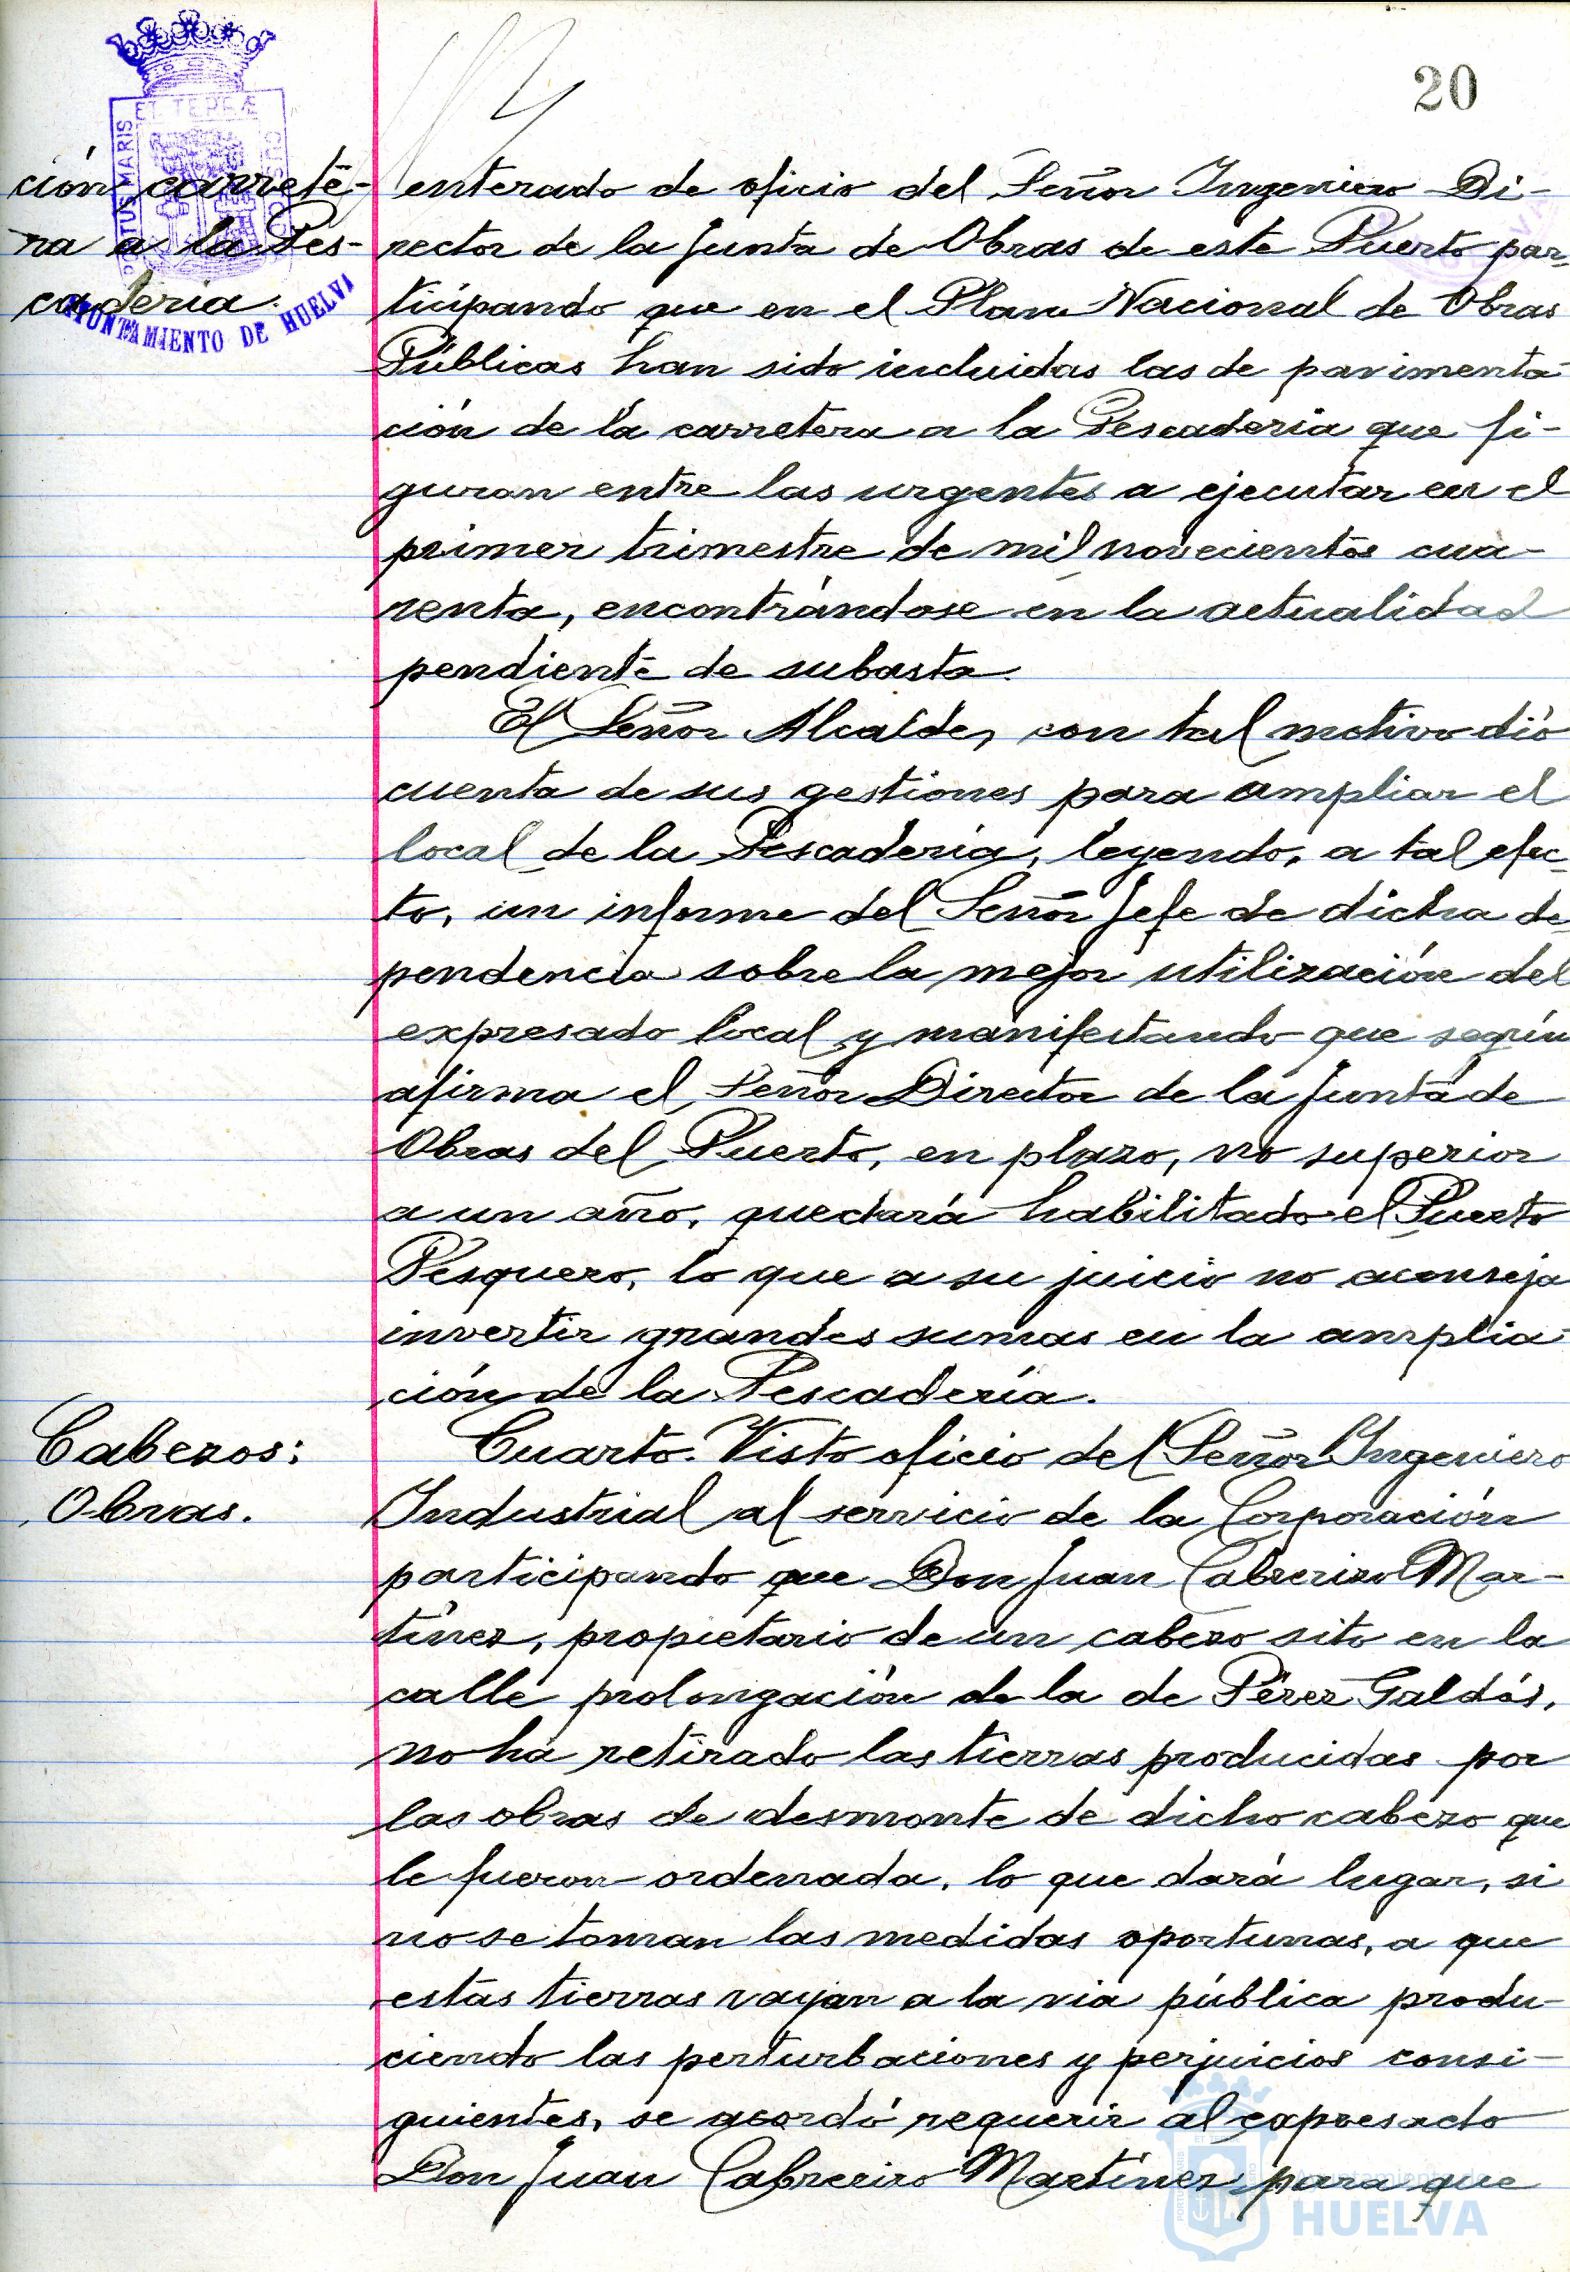 20
ción carrete-
ra a la Pes-
cadería.
ET TERRÆ
PORTUS MARIS
AYUNTAMIENTO DE HUELVA
enterado de oficio del Señor Ingeniero Di-
rector de la Junta de Obras de este Puerto par-
ticipando que en el Plan Nacional de Obras
Públicas han sido incluidas las de pavimenta-
ción de la carretera a la Pescadería que fi-
guran entre las urgentes a ejecutar en el
primer trimestre de mil novecientos cua-
renta, encontrándose en la actualidad
pendiente de subasta.
El Señor Alcalde, con tal motivo dió
cuenta de sus gestiones para ampliar el
local de la Pescadería, leyendo, a tal efec-
to, un informe del Señor Jefe de dicha de-
pendencia sobre la mejor utilización del
expresado local y manifestando que según
afirma el Señor Director de la Junta de
Obras del Puerto, en plazo, no superior
a un año, quedará habilitado el Puerto
Pesquero, lo que a su juicio no aconseja
invertir grandes sumas en la amplia-
ción de la Pescadería.
Cabezos:
Obras.
Cuarto. Visto oficio del Señor Ingeniero
Industrial al servicio de la Corporación
participando que Don Juan Cabrerizo Mar-
tínez, propietario de un cabezo sito en la
calle prolongación de la de Pérez Galdós,
no ha retirado las tierras producidas por
las obras de desmonte de dicho cabezo que
le fueron ordenada, lo que dará lugar, si
no se toman las medidas oportunas, a que
estas tierras vayan a la via pública produ-
ciendo las perturbaciones y perjuicios consi-
guientes, se acordó requerir al expresado
Don Juan Cabrerizo Martínez para que
Ayuntamiento de
HUELVA